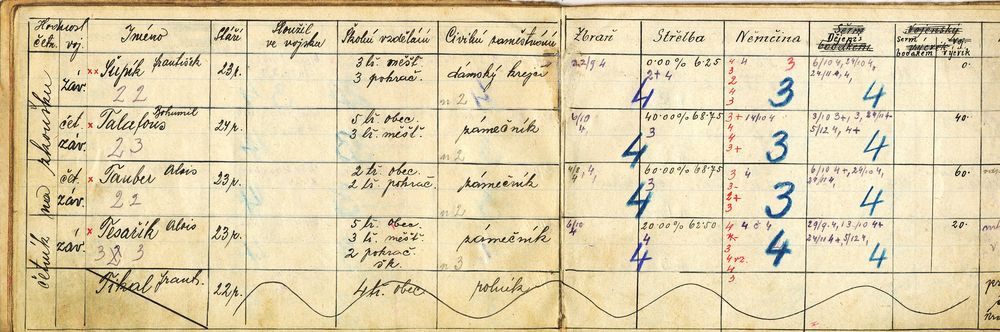 Hodnost čet. voj.
Jméno
Stáří
Sloužil ve vojsku
Školní vzdělání
Civilní zaměstnání
Zbraň
Střelba
Němčina
Šerm
Dějepis
bodákem
Vojenský
Šerm bodákem
voj. výcvik
četník na zkoušku
záv.
Šupík František
22
23 r.
3 tř. měšť.
3 pokrač.
dámský krejčí
2
22/9 4
4
0·00% 6·25
2+ 4
4
4 4 3
3
2
4
3
3
6/10 4, 24/10 4,
24/11 4, 4,
4
0·
čet. záv.
Talafous Bohumil
23
24 r.
5 tř. obec.
3 tř. měšť.
zámečník
2
6/10
4
40·00% 68·75
3
4
3+ 14/10 4
4
4
3+
3
3/10 3+, 3, 24/11+
5/12 4, 4+
4
40·
čet. záv.
Tauber Alois
22
23 r.
2 tř. obec.
2 tř. pokrač.
zámečník
2
4, 4,
4
60·00% 68·75
3
4
3 4
3-
2+
3
3
6/10 4+, 24/10 4,
24/11 4,
4
60·
záv.
Tesařík Alois
3
23 r.
5 tř. obec.
3 tř. měšť.
2 pokrač.
šk.
zámečník
3
6/10
4
4
20·00% 62·50
4
4
4
4
4
3
4
29/9 4, 13/10 4+
24/11 4+ 5/12 4,
4
20·
Tikal Frant.
22 r.
4 tř. obec
rolník